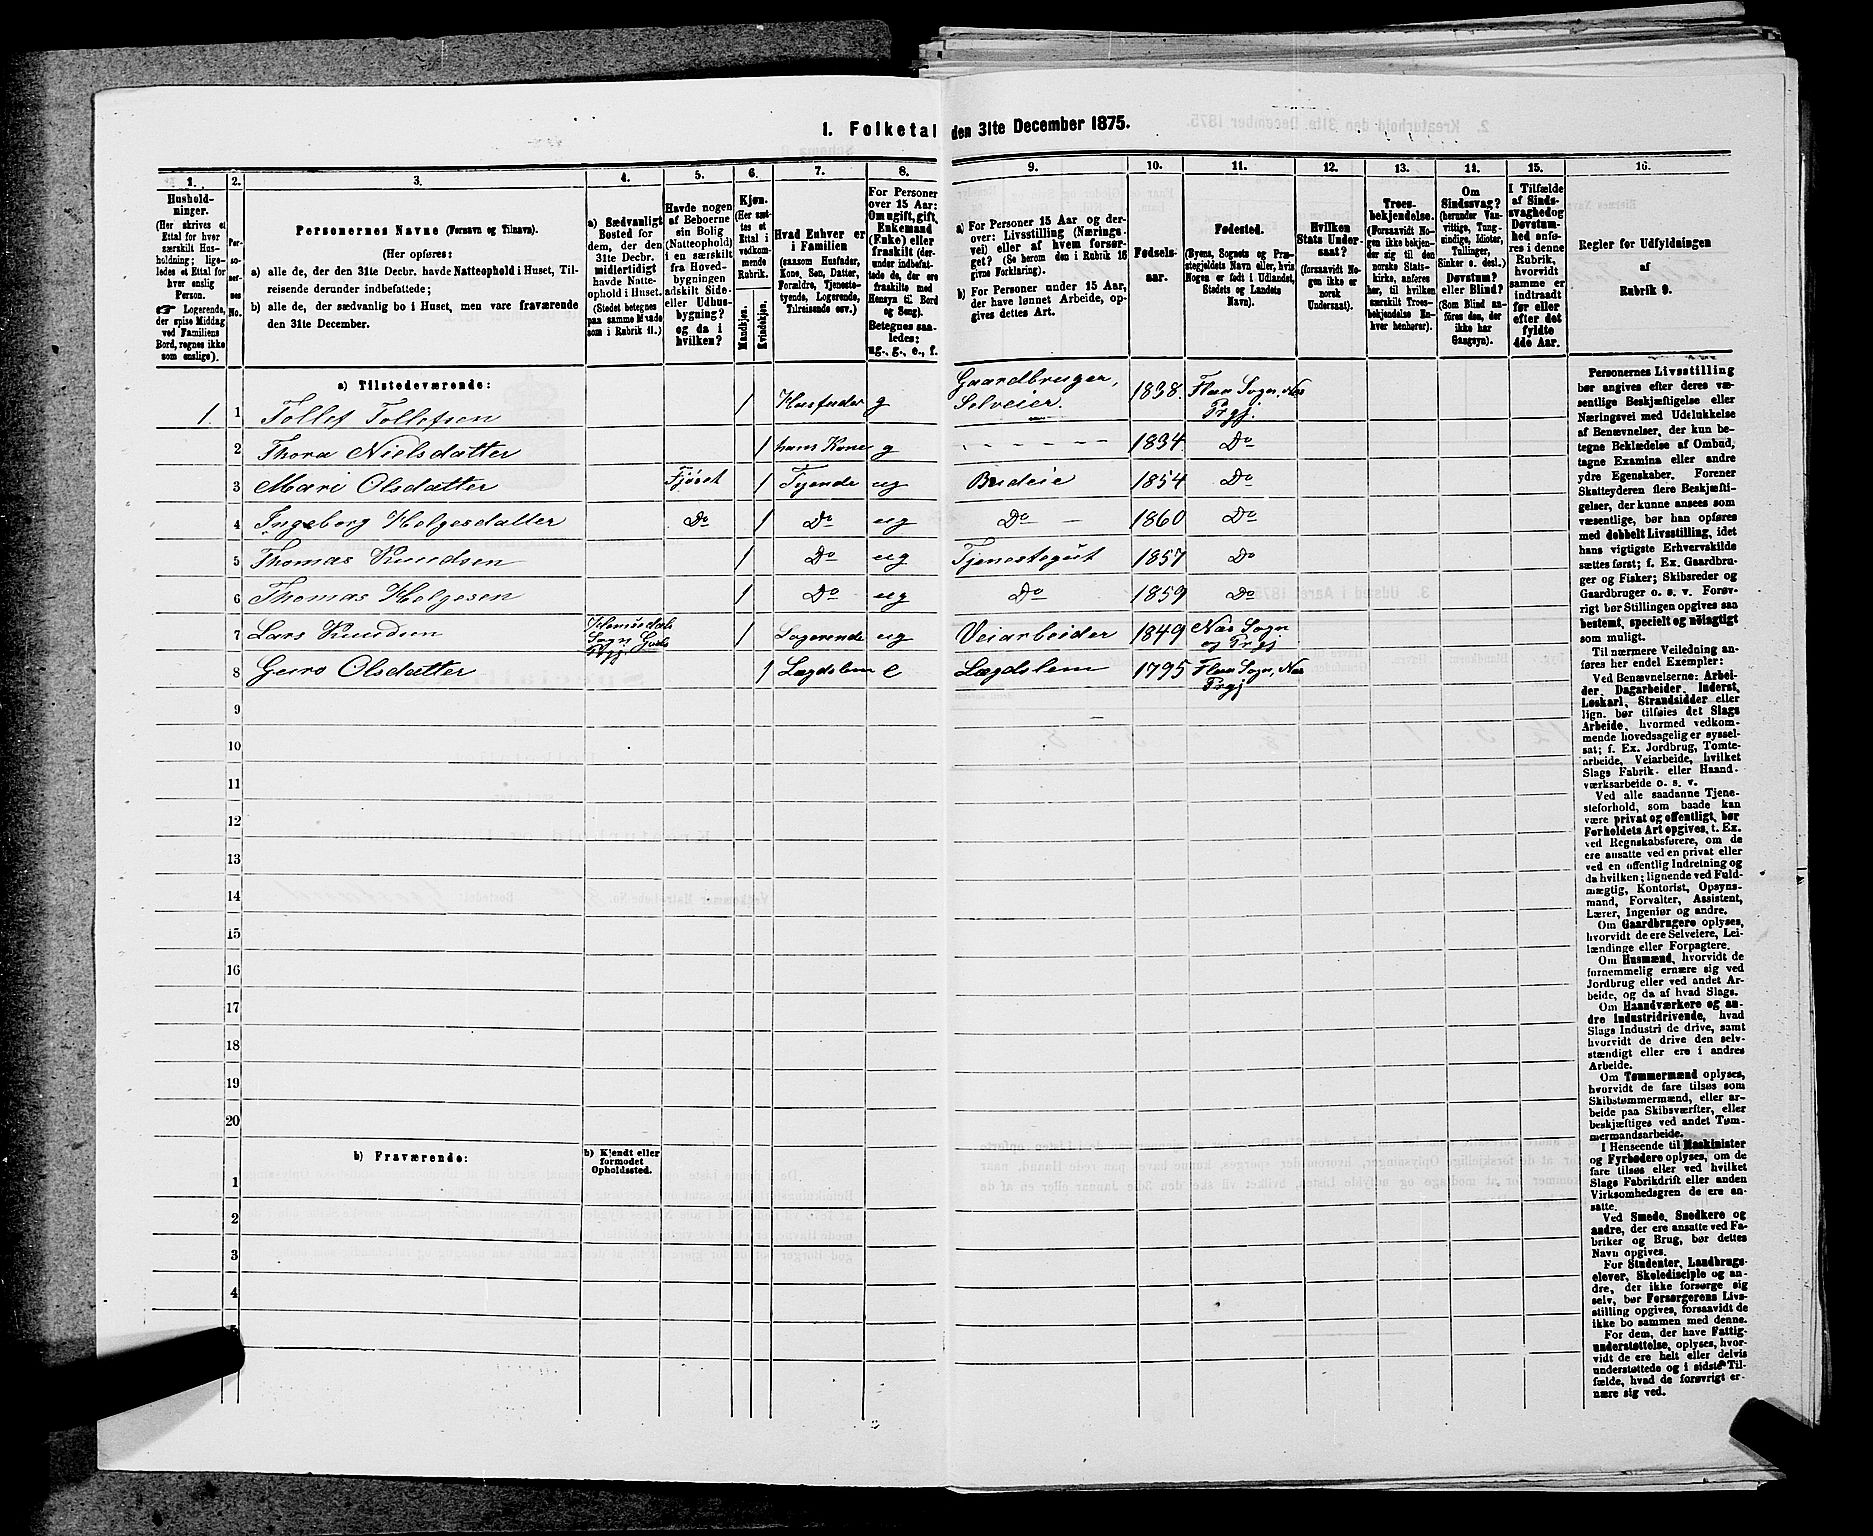 1. Folketal den 31te December 1875.
1. 2. 3. 4. 5. 6. 7. 8. 9. 10. 11. 12. 13. 14. 15. 16.
Husholdninger.
(Her skrives et
Ettal for hver
særskilt Husholdning; ligeledes et Ettal for
hver enslig
Person.
☞ Logerende,
der spise Middag
ved Familiens
Bord, regnes ikke
som enslige).
Personernes No.
Personernes Navne (Fornavn og Tilnavn).
(Her opføres:
a) alle de, der den 31te Decbr. havde Natteophold i Huset, Tilreisende derunder indbefattede;
b) alle de, der sædvanlig bo i Huset, men vare fraværende
den 31te December.
a) Sædvanligt
Bosted for
dem, der den
31te Decbr.
midlertidigt
havde Natteophold i Huset.
(Stedet betegnes
paa samme Maade
som i Rubrik 11.)
Havde nogen
af Beboerne
sin Bolig
(Natteophold)
i en særskilt
fra Hovedbygningen
adskilt Side-
eller Udhusbygning?
og da i
hvilken?
Kjøn.
(Her sættes et
Ettal i
vedkommende
Rubrik.
Mandkjøn.
Kvindekjøn.
Hvad Enhver er
i Familien
(saasom Husfader,
Kone, Søn, Datter,
Forældre, Tjenestetyende, Logerende,
Tilreisende osv.)
For Personer
over 15 Aar:
Om ugift, gift,
Enkemand
(Enke) eller
fraskilt (derunder indbefattede de, der ere
fraskilte med
Hensyn til Bord
og Seng).
Betegnes saaledes:
ug., g., e., f.
a) For Personer 15 Aar og derover: Livsstilling (Næringsvei) eller af hvem forsørget? (Se herom den i Rubrik 16
givne Forklaring).
b) For Personer under 15 Aar,
der have lønnet Arbeide, opgives dettes Art.
Fødselsaar.
Fødested.
(Byens, Sognets og Præstegjeldets Navn eller, hvis
Nogen er født i Udlandet,
Stedets og Landets
Navn).
Hvilken
Stats Undersaat?
(forsaavidt Nogen ikke er
norsk
Undersaat).
Troesbekjendelse.
(Forsaavidt Nogen ikke bekjender sig til den
norske Statskirke, anføres
her, til hvilken
særskilt Troesbekjendelse Enhver henhører).
Om
Sindssvag?
(herunder Vanvittige, Tungsindige, Idioter,
Tullinger,
Sinker o. desl.).
Døvstum?
eller Blind?
(Som Blind anføres den, der
ikke har
Gangsyn).
I Tilfælde
af Sindssvaghed og
Døvstumhed anføres i denne
Rubrik,
hvorvidt
samme er
indtraadt
før eller
efter det
fyldte
4de Aar.
Regler for Udfyldningen
af
Rubrik 9.
a) Tilstedeværende:
1. 1 Tollef Tollefsen 1 Husfader g Gaardbruger, Selveier. 1838. Flaa Sogn, Nes Prgj.
2 Thora Nielsdatter 1 hans Kone g - - - - - 1834 Do
3 Mari Olsdatter Fjøset 1 Tjende ug Budeie 1854 Do
4 Ingeborg Helgesdatter Do 1 Do ug Do - 1860 Do
5 Thomas Knudsen 1 Do ug Tjenestegut 1857 Do
6 Thomas Helgesen 1 Do ug Do 1859 Do
7 Lars Knudsen Hemsedals Sogn Gols Prgj 1 Logerende ug Veiarbeider 1849 Nes Sogn og Prgj
8 Guro Olsdatter 1 Lægdslem e Lægdslem 1795 Flaa Sogn, Nes Prgj
9
10
11
12
13
14
15
16
17
18
19
20
b) Fraværende:
b) Kjendt eller
formodet
Opholdssted.
1
2
3
4
Personernes Livsstilling
bør angives efter deres væsentlige Beskjæftigelse eller
Næringsvei med Udelukkelse
af Benævnelser, der kun betegne Beklædelse af Ombud,
tagne Examina eller andre
ydre Egenskaber. Forener
Skatteyderen flere Beskjæftigelser, der kunne ansees som
væsentlige, bør han opføres
med dobbelt Livsstilling, idet
hans vigtigste Erhvervskilde
sættes først; f. Ex. Gaardbruger og Fisker; Skibsreder og
Gaardbruger o. s. v. Forøvrigt bør Stillingen opgives saa
bestemt, specielt og nøiagtigt
som muligt.
Til nærmere Veiledning anføres her endel Exempler:
Ved Benævnelserne: Arbeider, Dagarbeider, Inderst,
Løskarl, Strandsidder eller
lign. bør tilføies det Slags
Arbeide, hvormed vedkommende hovedsagelig er sysselsat; f. Ex. Jordbrug, Tomtearbeide, Veiarbeide, hvilket
Slags Fabrik- eller Haandværksarbeide o. s. v.
Ved alle saadanne Tjenesteforhold, som baade kan
være privat og offentligt, bør
Forholdets Art opgives, t. Ex.
ved Regnskabsførere, om de
ere ansatte ved en privat eller
ved en offentlig Indretning og
da hvilken; lignende ved Fuldmægtig, Kontorist, Opsynsmand, Forvalter, Assistent,
Lærer, Ingeniør og andre.
Om Gaardbrugere oplyses,
hvorvidt de ere Selveiere, Leilændinge eller Forpagtere.
Om Husmænd, hvorvidt de
fornemmelig ernære sig ved
Jordbrug eller ved andet Arbeide, og da af hvad Slags.
Om Haandværkere og andre industridrivende, hvad
Slags Industri de drive, samt
hvorvidt de drive den selvstændigt eller ere i andres
Arbeide.
Om Tømmermænd oplyses,
hvorvidt de fare tilsøs som
Skibstømmermænd, eller arbeide paa Skibsværfter, eller
beskjæftiges ved andet Tømmermandsarbeide.
I Henseende til Maskinister
og Fyrbødere oplyses, om de
fare tilsøs eller ved hvilket
Slags Fabrikdrift eller anden
Virksomhedsgren de ere ansatte.
Ved Smede, Snedkere og
andre, der ere ansatte ved Fabriker og Brug, bør dettes
Navn opgives.
For Studenter, Landbrugselever, Skoledisciple og andre, der ikke forsørge sig
selv, bør Forsørgerens Livsstilling opgives, forsaavidt de
ikke bo sammen med denne.
For dem, der have Fattigunderstøttelse, oplyses, hvorvidt de ere helt eller delvis
understøttede og i sidste Tilfælde, hvad de forøvrigt ernære sig ved.